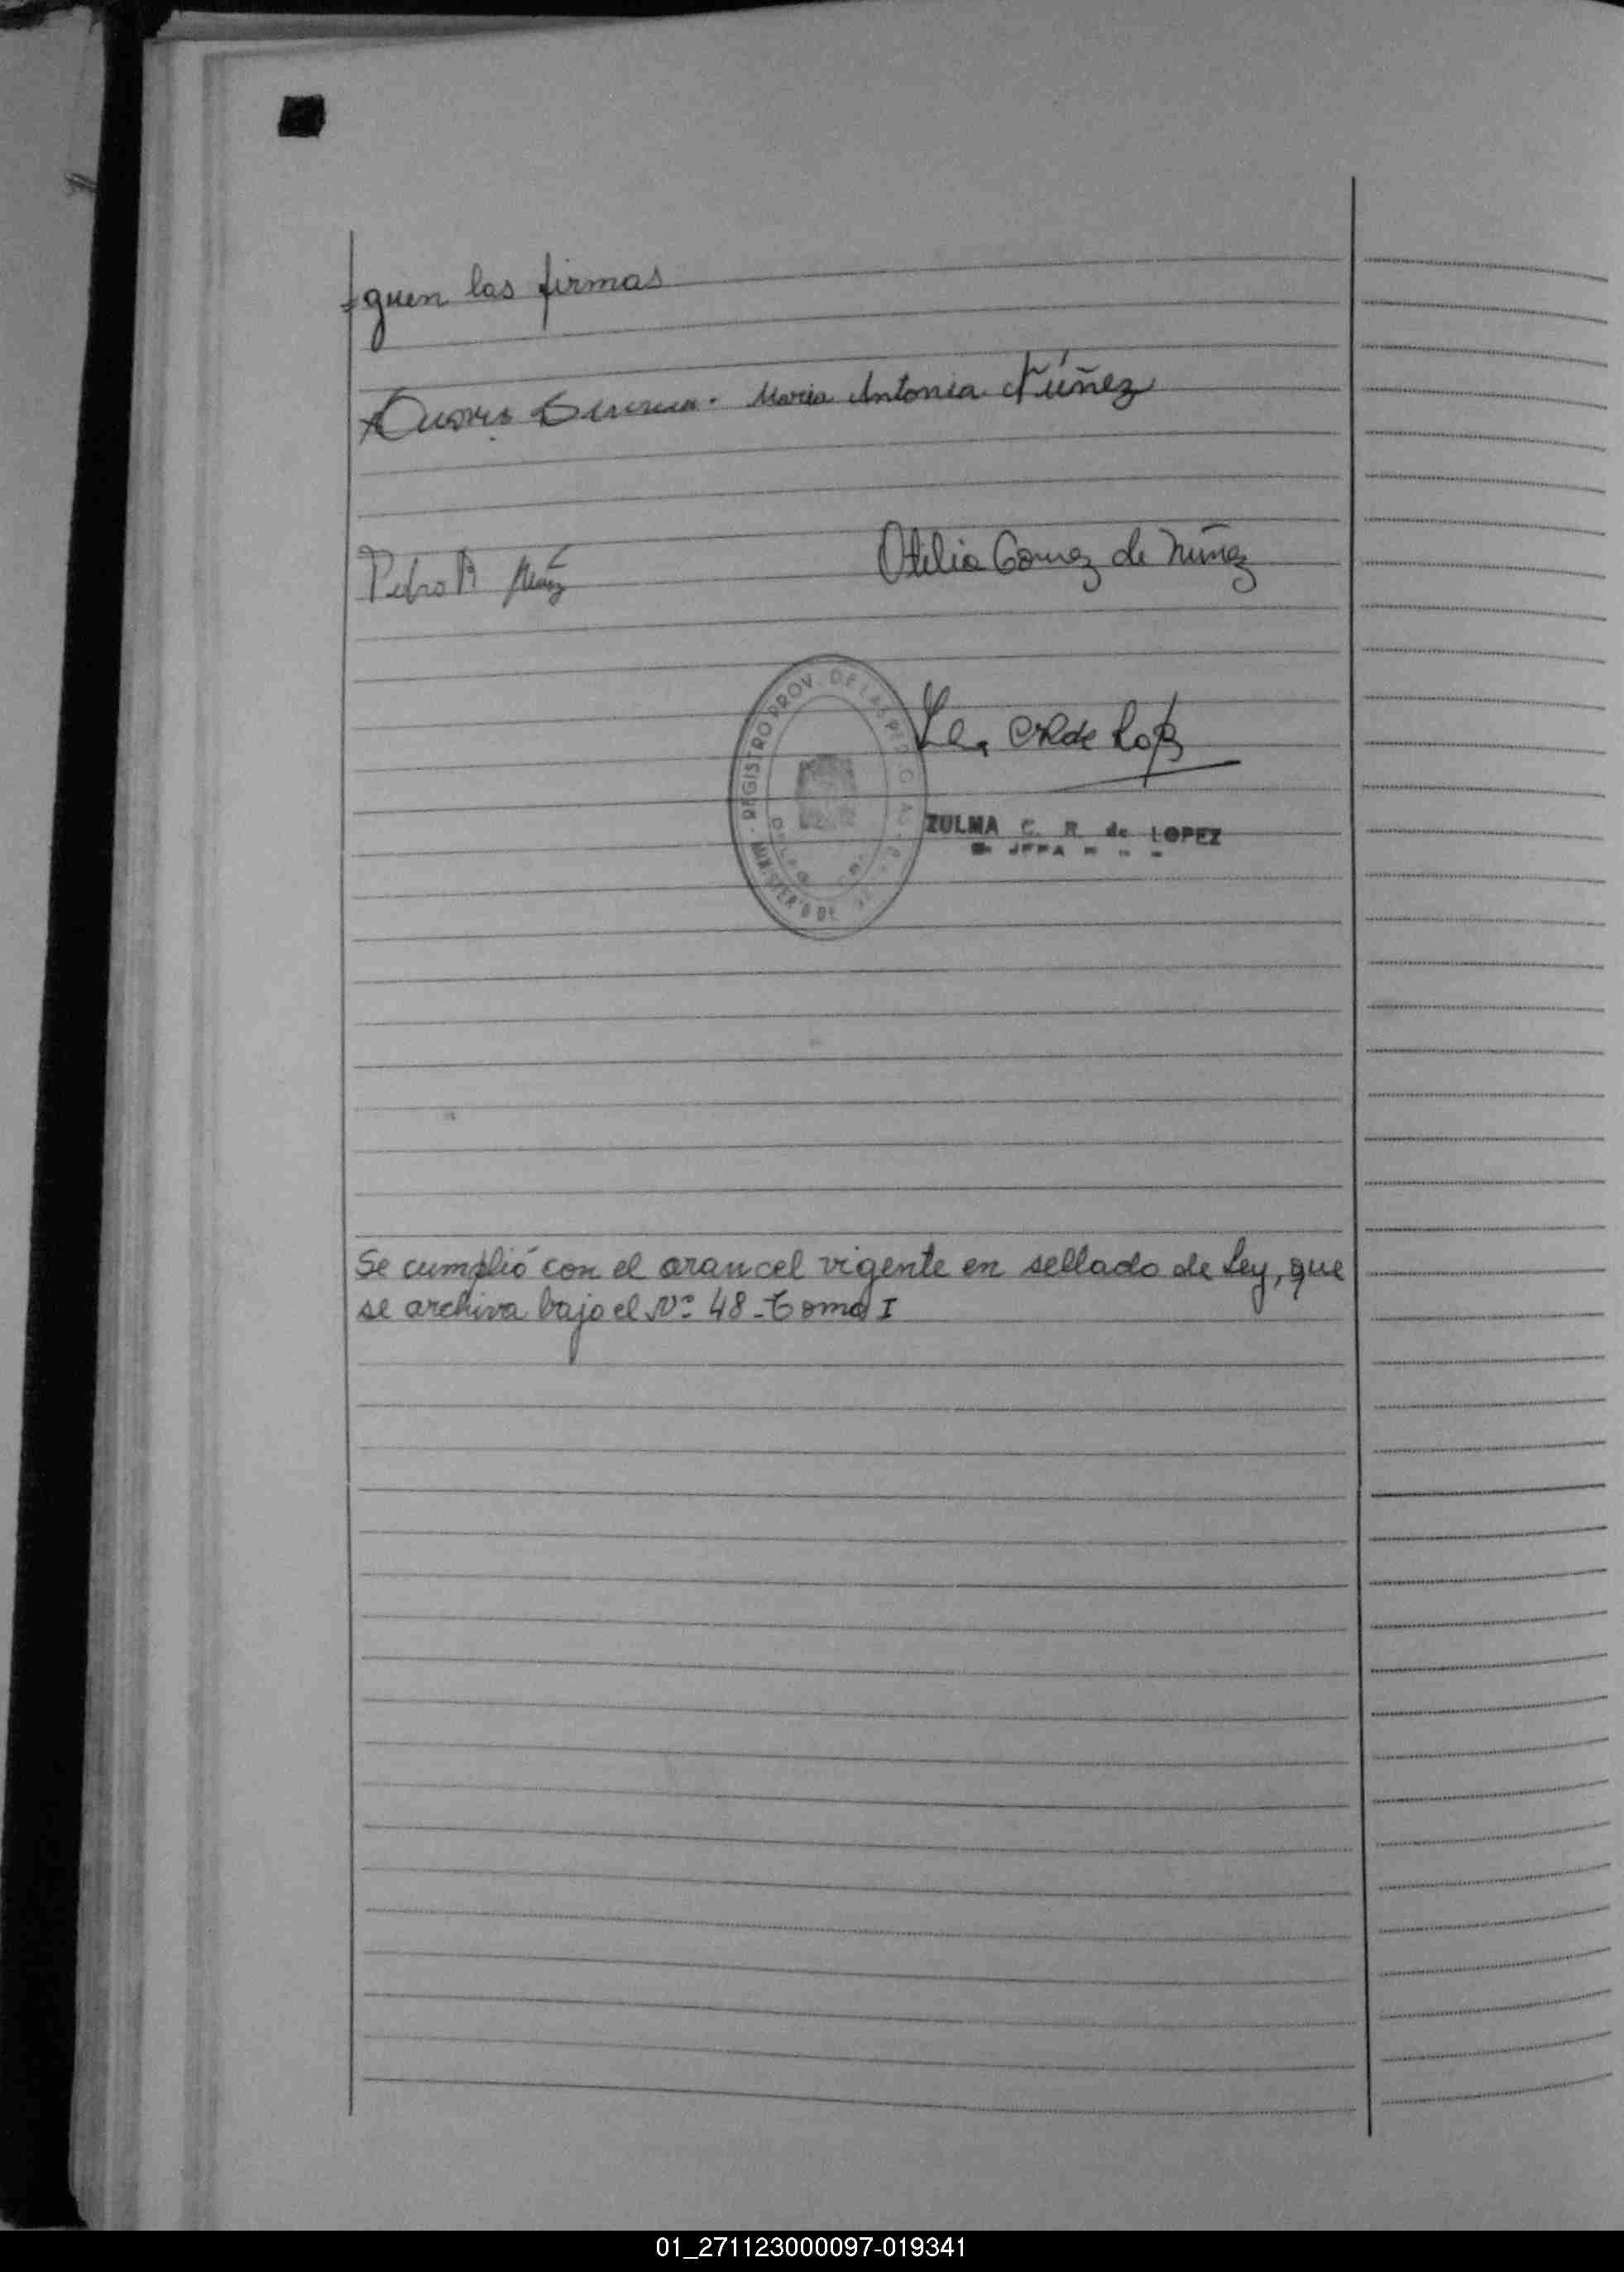 guen las firmas
Maria Antonia Núñez
Pedro R Otilia Gomez de Núñez
REGISTRO PROV. DE LAS PERSONAS
MINISTERIO DE
ZULMA C. R. de LOPEZ
JEFA
Se cumplió con el arancel vigente en sellado de Ley, que
se archiva bajo el Nº 48 - Tomo I
01_271123000097-019341